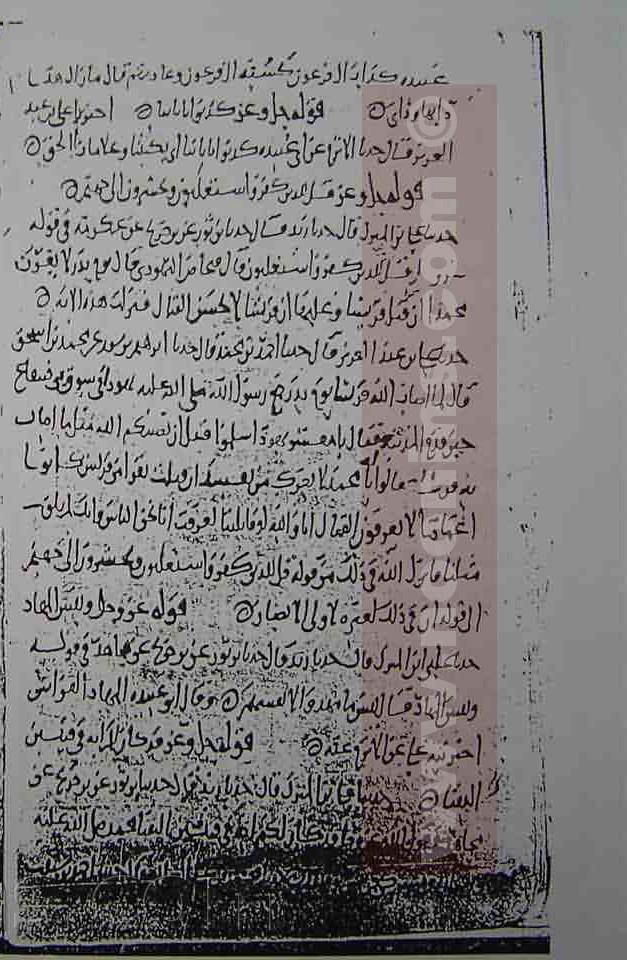 عبيده كداب ال فرعون كسنة ال فرعون وعادتهم قال ما زال هذا
دابها ودابي قوله جل وعز كذبوا باياتنا اخبرنا علي بن عبد
العزيز قال حدثنا الاثرم عن ابي عبيده كذبوا باياتنا اي بكتبنا وعلاماتنا الحق
قوله جل وعز قل للذين كفروا ستغلبون وتحشرون الى جهنم
حدثنا علي بن المبرك قال حدثنا زيد قال حدثنا ابن ثور عن ابن جريج عن عكرمة في قوله
قل للذين كفروا ستغلبون قال فنحاص اليهودي قال يوم بدر لا يغرن
محمدا ان قتل قريشا وغلبها ان قريشا لا تحسن القتال فنزلت هذه الاية
حدثنا علي بن عبد العزيز قال حدثنا احمد بن محمد قال حدثنا ابرهيم بن سعد عن محمد بن اسحق
قال لما اصاب الله قريشا يوم بدر جمع رسول الله صلى الله عليه يهودا في سوق بني قينقاع
حين قدم المدينة فقال يا معشر يهود اسلموا قبل ان يصيبكم الله مثل ما اصاب
به قريشا فقالوا يا محمد لا يغرنك من نفسك ان قتلت نفرا من قريش كانوا
اغمارا لا يعرفون القتال انك والله لو قاتلتنا لعرفت انا نحن الناس وانك لم تلق
مثلنا فانزل الله في ذلك من قوله قل للذين كفروا ستغلبون وتحشرون الى جهنم
الى قوله ان في ذلك لعبرة لاولي الابصار قوله عز وجل ولبئس المهاد
حدثنا علي بن المبرك قال حدثنا زيد قال حدثنا ابن ثور عن ابن جريج عن مجاهد في قوله
ولبئس المهاد قال لبئس ما مهدوا لانفسهم وقال ابو عبيده المهاد الفراش
اخبرنيه علي عن الاثرم عنه قوله جل وعز قد كان لكم اية في فئتين
التقتا حدثنا علي بن المبرك قال حدثنا زيد قال حدثنا ابن ثور عن ابن جريج عن
مجاهد قد كان لكم اية في فئتين التقتا محمد صلى الله عليه